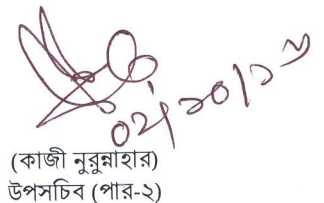 ০২/১০/১৬
(কাজী নুরুন্নাহার)
উপসচিব (পার-২)